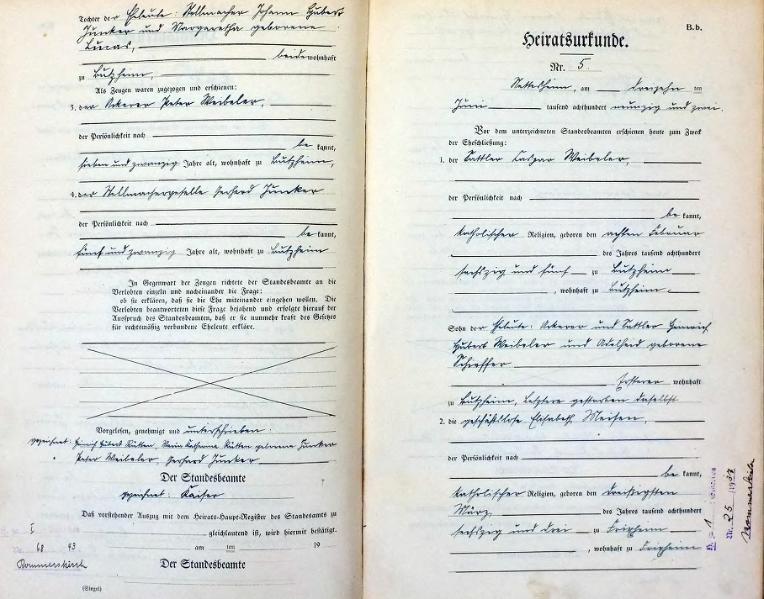 Tochter der Eheleute: Stellmacher Johann Hubert
Junker und Margaretha geborene
Lucas,
beide wohnhaft
zu Butzheim,
Als Zeugen waren zugezogen und erschienen:
3. der Ackerer Peter Weibeler,
der Persönlichkeit nach
be kannt,
sieben und zwanzig Jahre alt, wohnhaft zu Butzheim,
4. der Stellmachergeselle Gerhard Junker
der Persönlichkeit nach
be kannt,
fünf und zwanzig Jahre alt, wohnhaft zu Butzheim
In Gegenwart der Zeugen richtete der Standesbeamte an die
Verlobten einzeln und nacheinander die Frage:
ob sie erklären, daß sie die Ehe miteinander eingehen wollen. Die
Verlobten beantworteten diese Frage bejahend und erfolgte hierauf der
Ausspruch des Standesbeamten, daß er sie nunmehr kraft des Gesetzes
für rechtmäßig verbundene Eheleute erkläre.
Vorgelesen, genehmigt und unterschrieben:
gezeichnet: Hubert Katharina geborene Junker
Peter Weibeler, Gerhard Junker
Der Standesbeamte
gezeichnet: Kaiser
Daß vorstehender Auszug mit dem Heirats-Haupt-Register des Standesamts zu
gleichlautend ist, wird hiermit bestätigt.
I
68 43
am ten 19
Rommerskirch
Der Standesbeamte
(Siegel)
B.b.
Heiratsurkunde.
Nr. 5.
Nettesheim, am dreizehn ten
Juni tausend achthundert neunzig und zwei.
Vor dem unterzeichneten Standesbeamten erschienen heute zum Zweck
der Eheschließung:
1. der Sattler Caspar Weibeler,
der Persönlichkeit nach
be kannt,
katholischer Religion, geboren den achten Februar
des Jahres tausend achthundert
sechszig und fünf zu Butzheim
, wohnhaft zu Butzheim
Sohn der Eheleute: Ackerer und Sattler Heinrich
Hubert Weibeler und Adelheid geborene
Schieffer
Ersterer wohnhaft
zu Butzheim, Letztere gestorben daselbst
2. die geschäftslose Elisabeth Meisen,
der Persönlichkeit nach
be kannt,
katholischer Religion, geboren den dreißigsten
März des Jahres tausend achthundert
sechszig und drei zu Frixheim
, wohnhaft zu Frixheim
Nr. 26 /1938
Rommerskirch